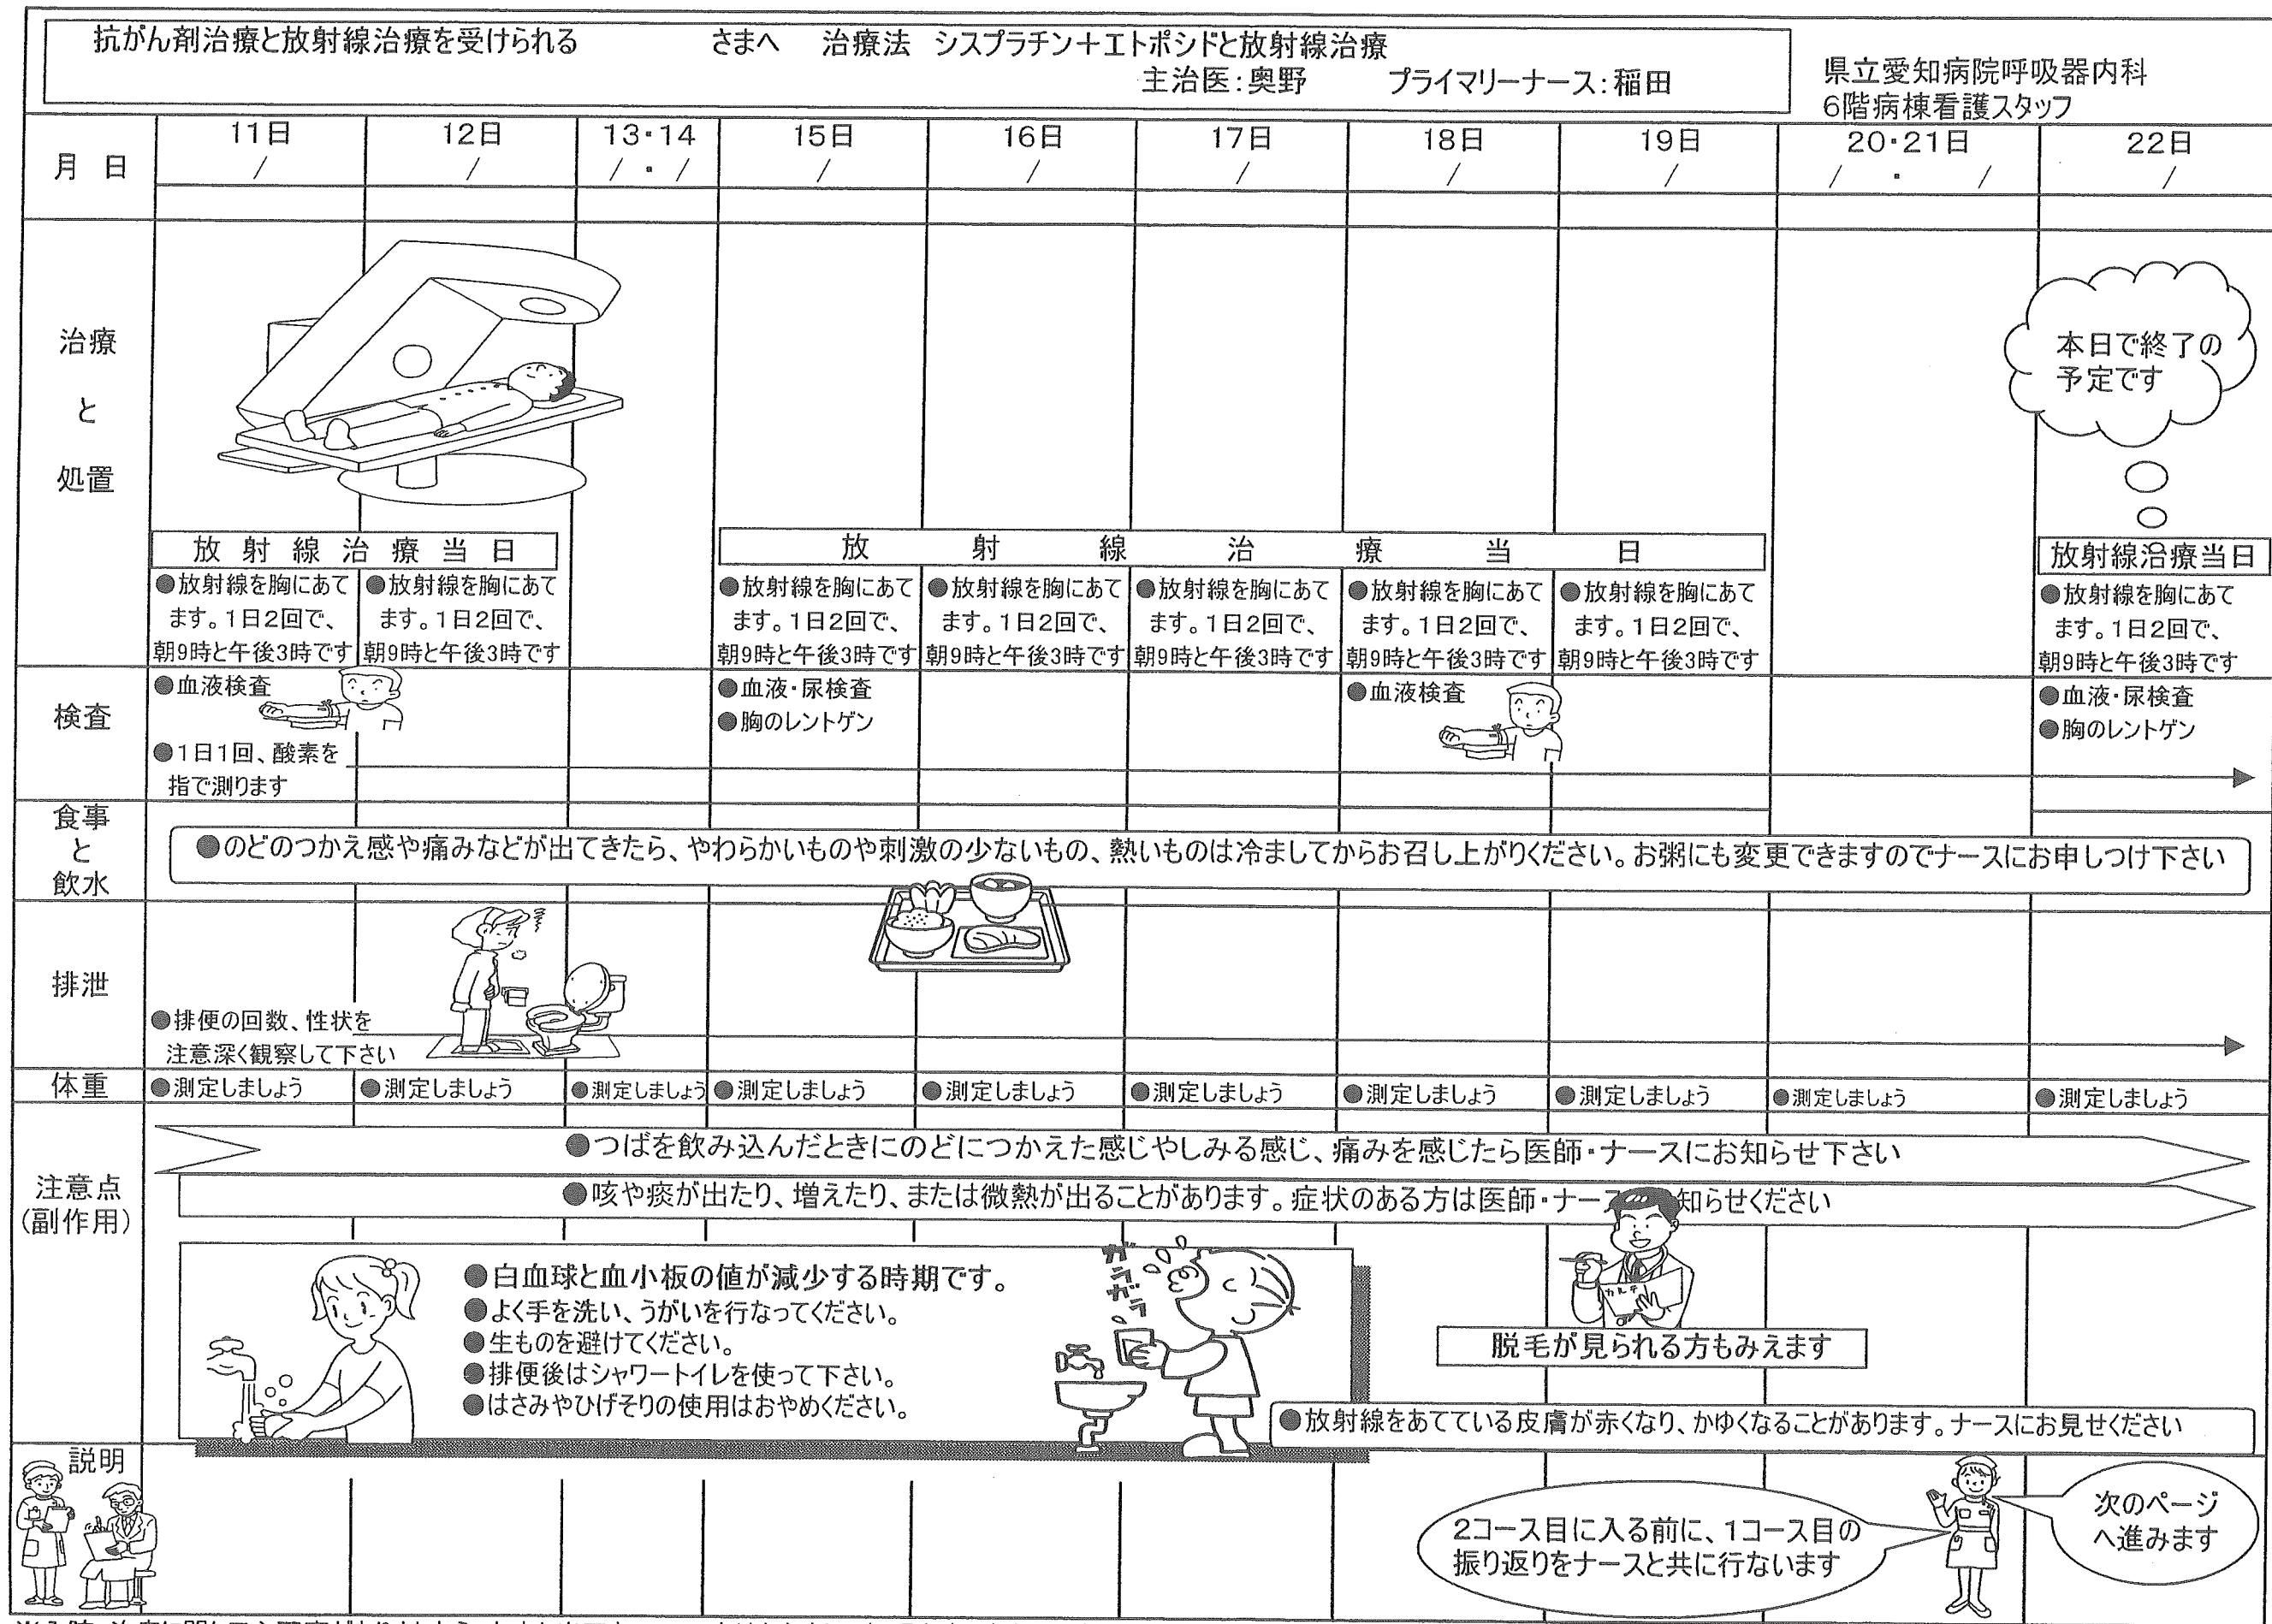 抗がん剤治療と放射線治療を受けられる　さまへ　治療法　シスプラチン＋エトポシドと放射線治療
主治医：奥野　プライマリーナース：稲田
県立愛知病院呼吸器内科
6階病棟看護スタッフ
月　日
11日　12日　13・14　15日　16日　17日　18日　19日　20・21日　22日
/　/　/・/　/　/　/　/　/　/・/　/
治療
と
処置
本日で終了の
予定です
放射線治療当日
●放射線を胸にあて
ます。1日2回で、
朝9時と午後3時です
●放射線を胸にあて
ます。1日2回で、
朝9時と午後3時です
放射線治療当日
●放射線を胸にあて
ます。1日2回で、
朝9時と午後3時です
●放射線を胸にあて
ます。1日2回で、
朝9時と午後3時です
●放射線を胸にあて
ます。1日2回で、
朝9時と午後3時です
●放射線を胸にあて
ます。1日2回で、
朝9時と午後3時です
●放射線を胸にあて
ます。1日2回で、
朝9時と午後3時です
放射線治療当日
●放射線を胸にあて
ます。1日2回で、
朝9時と午後3時です
検査
●血液検査
●1日1回、酸素を
指で測ります
●血液・尿検査
●胸のレントゲン
●血液検査
●血液・尿検査
●胸のレントゲン
食事
と
飲水
●のどのつかえ感や痛みなどが出てきたら、やわらかいものや刺激の少ないもの、熱いものは冷ましてからお召し上がりください。お粥にも変更できますのでナースにお申しつけ下さい
排泄
●排便の回数、性状を
注意深く観察して下さい
体重
●測定しましょう　●測定しましょう　●測定しましょう　●測定しましょう　●測定しましょう　●測定しましょう　●測定しましょう　●測定しましょう　●測定しましょう　●測定しましょう
注意点
（副作用）
●つばを飲み込んだときにのどにつかえた感じやしみる感じ、痛みを感じたら医師・ナースにお知らせ下さい
●咳や痰が出たり、増えたり、または微熱が出ることがあります。症状のある方は医師・ナー　知らせください
●白血球と血小板の値が減少する時期です。
●よく手を洗い、うがいを行なってください。
●生ものを避けてください。
●排便後はシャワートイレを使って下さい。
●はさみやひげそりの使用はおやめください。
ガラガラ
カルテ
脱毛が見られる方もみえます
●放射線をあてている皮膚が赤くなり、かゆくなることがあります。ナースにお見せください
説明
2コース目に入る前に、1コース目の
振り返りをナースと共に行ないます
次のページ
へ進みます